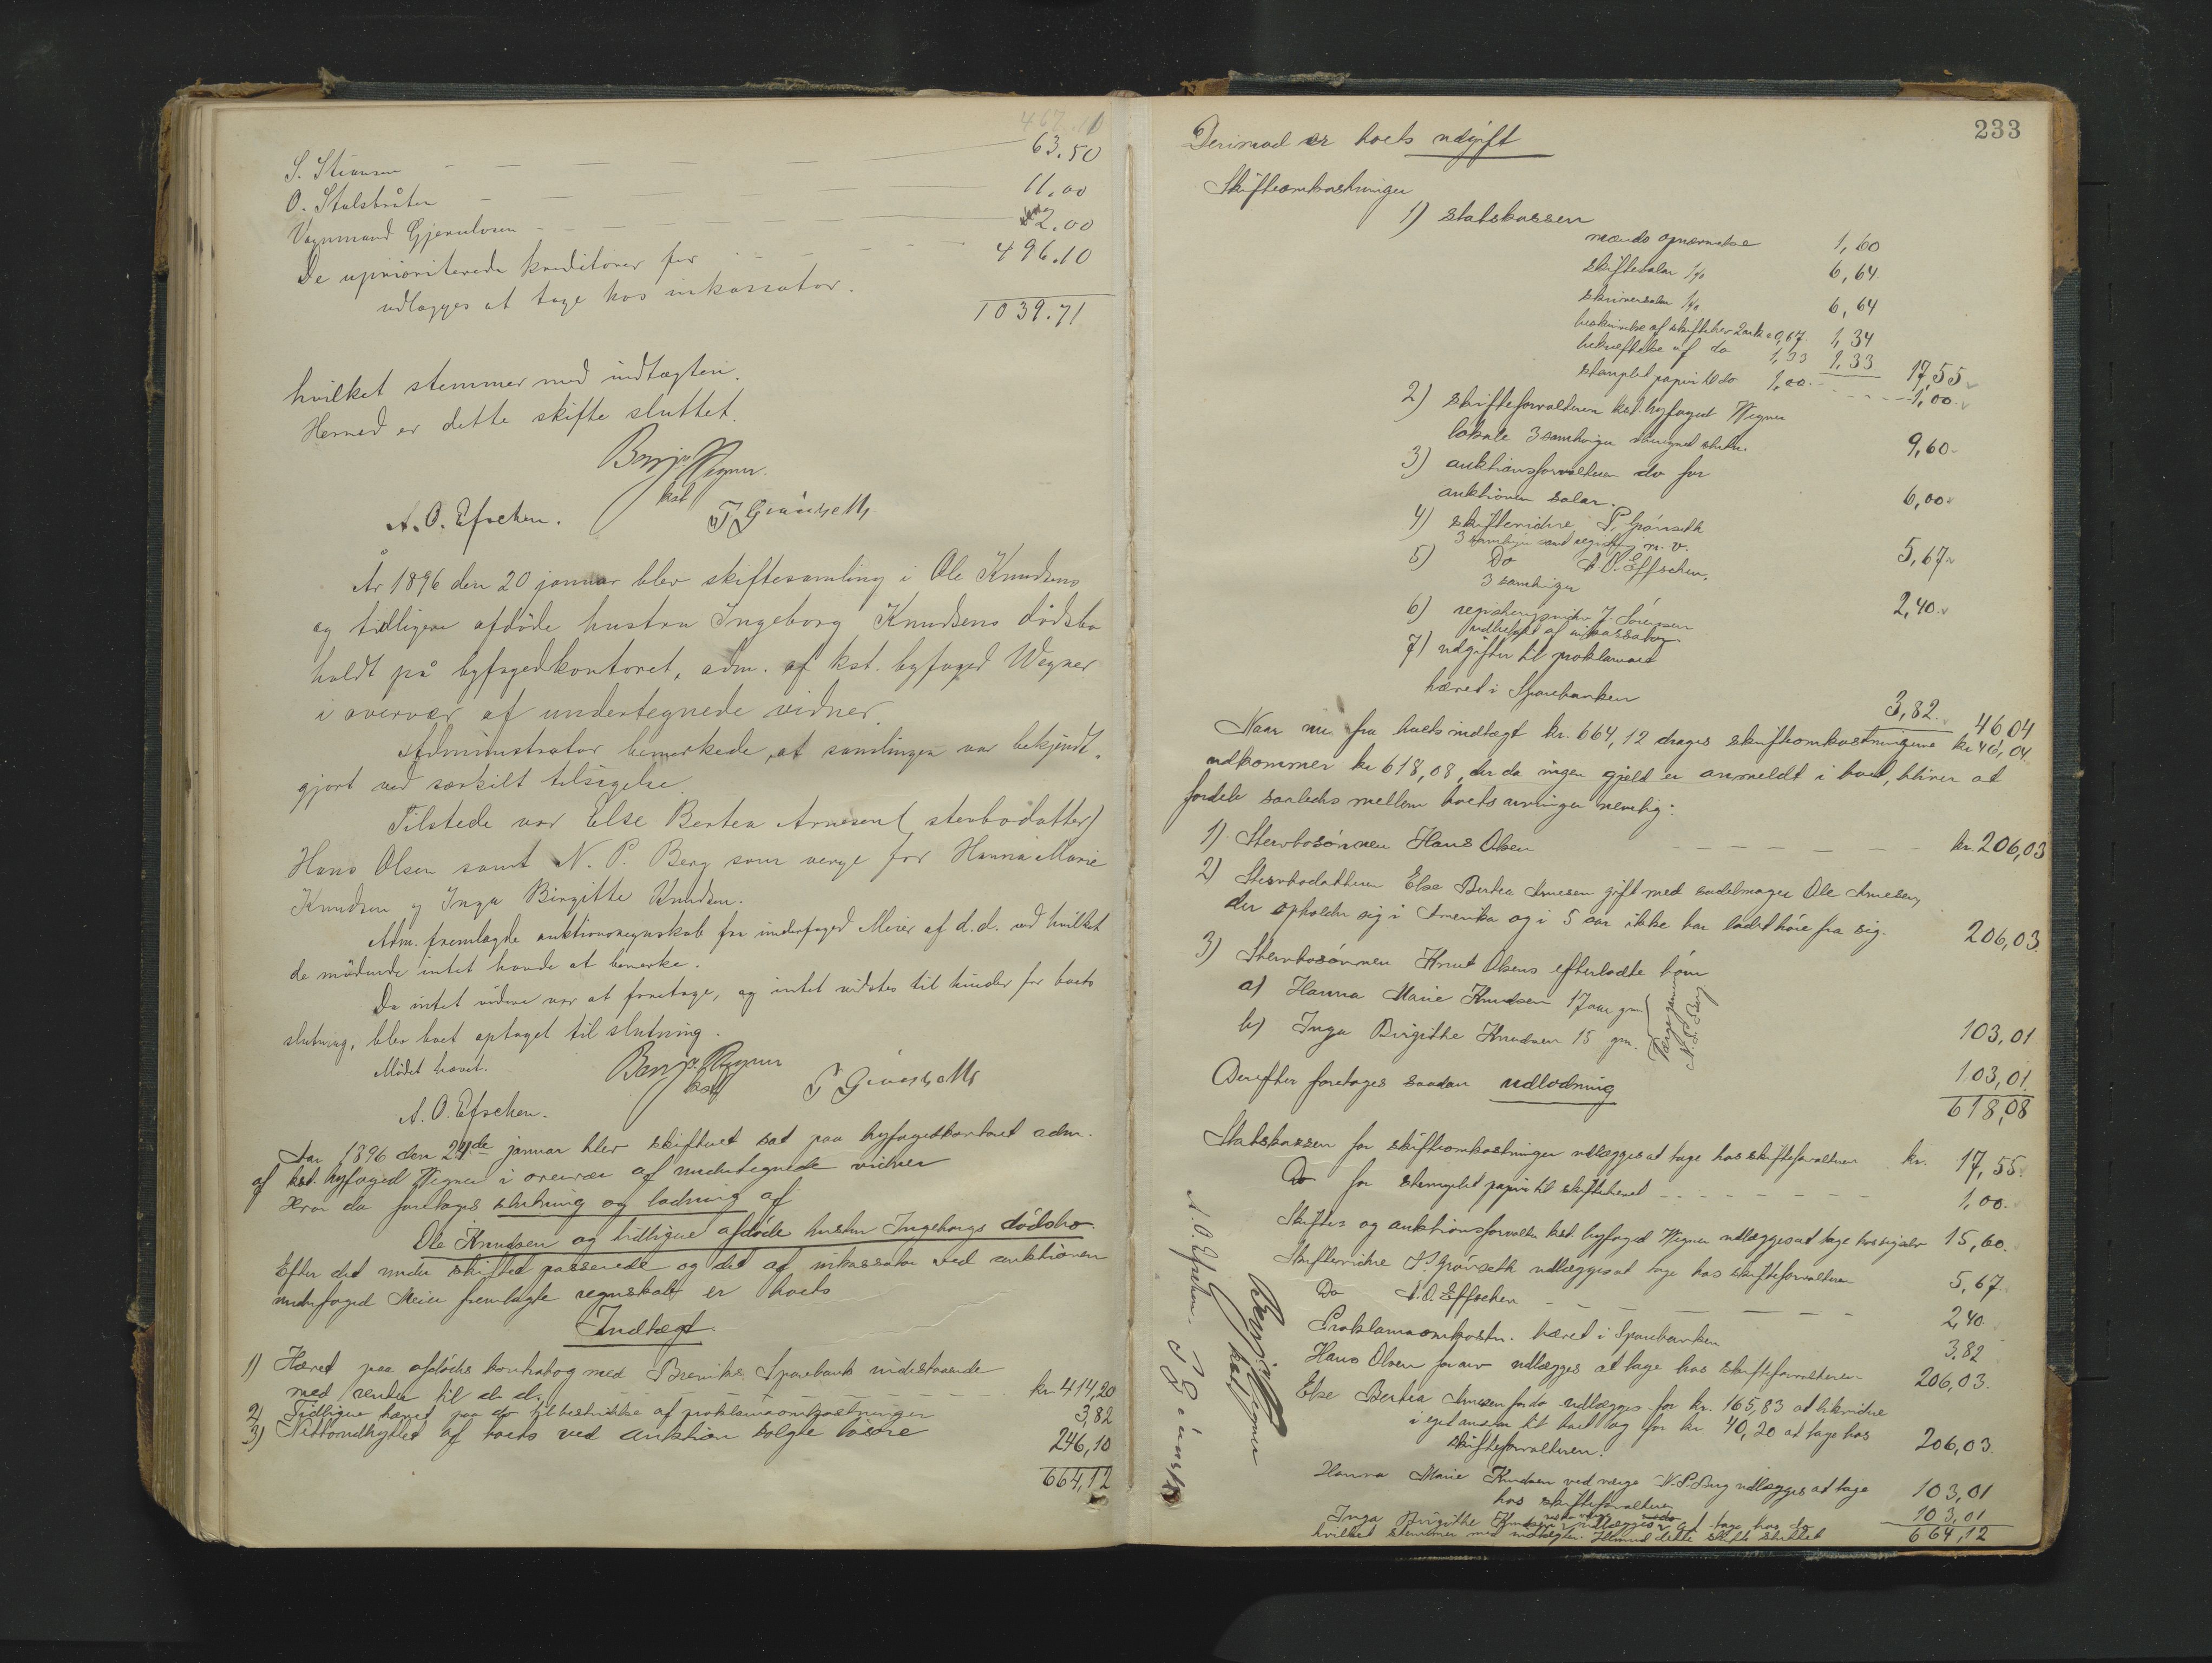 467.11
S. Stiansen 63.50
O. Stulsbråten 11.00
Vognmand Gjerulvsen 2.00
De uprioriterede kreditorer før 496.10
udlægges at tage hos inkassator.
1039.71
hvilket stemmer med indtægten.
Hermed er dette skifte sluttet.
Benj. Wegner.
kst
A. O. Efschen.
År 1896 den 20 januar blev skiftesamling i Ole Knudsens
og tidligere afdöde hustru Ingeborg Knudsens dödsbo
holdt på byfogedkontoret, adm. af kst. byfoged Wegner
i overvær af undertegnede vidner.
Administrator bemerkede, at samlingen var bekjendt-
gjort ved særskilt tilsigelse.
Tilstede var Else Bertea Arnesen (stervbodatter)
Hans Olsen samt N. P. Berg som verge for Hanna Marie
Knudsen og Inga Birgitte Knudsen.
Adm. fremlagde auktionsregnskab fra underfoged Meier af d.d. ved hvilket
de mødende intet havde at bemerke.
Da intet videre var at foretage, og intet vidstes til hinder for boets
slutning, blev boet optaget til slutning.
Mödet hævet.
Benj. Wegner
kst
A. O. Efschen.
Aar 1896 den 24de januar blev skifteret sat paa byfogedkontoret adm.
af kst. byfoged Wegner i overvær af undertegnede vidner
Hvor da foretages slutning og lodning af
Ole Knudsen og tidligere afdöde hustru Ingeborgs dödsbo.
Efter det under skiftet passerede og det af inkassator ved auktionen
underfoged Meier fremlagte regnskab er boets
Indtægt.
1) Hævet paa afdödes kontrabog med Breviks Sparebank indestaaende
med renter til d. d. kr. 414,20
2) Tidligere hævet paa do til bestridelse af proklamaomkostninger 3,82
3) Nettoudbyttet af boets ved auktion solgte lösöre 246,10
664,12
233
Derimod er boets udgift
Skifteomkostninger
1) statskassen
mænds opnævnelse 1,60
skiftesalær 1% 6,64
skriversalær 1% 6,64
beskrivelse af skiftebrev 2 ark a 0,67. 1,34
bekræftelse af do 1,33 1,33 17,55
stemplet papir til do 1,00 1,00
2) skifteforvalteren kst. byfoged Wegner
lokale 3 samlinger 9,60
3) auktionsforvalteren do for
auktionen salær. 6,00
4) skiftevidne P. Grönseth
3 samlinger samt registrering m. v. 5,67
5) Do A. O. Effschen,
3 samlinger 2,40
6) registreringsvidne J. Sörensen
udbetalt af inkassator
7) udgifter til proklamaet
hævet i Sparebanken 3,82 46,04
Naar nu fra boets indtægt kr. 664,12 drages skifteomkostningerne kr 46,04
udkommer kr 618,08, der da ingen gjeld er anmeldt i boet, bliver at
fordele saaledes mellem boets arvinger nemlig:
1) Stervbosönnen Hans Olsen kr 206,03
2) Stervbodatteren Else Bertea Arnesen gift med sadelmager Ole Arnesen,
der opholder sig i Amerika og i 5 aar ikke har ladet höre fra sig. 206,03.
3) Stervbosönnen Knut Olsens efterladte börn
a) Hanna Marie Knudsen 17 aar gm. 103,01
b) Inga Birgithe Knudsen 15 gm. 103,01.
N. P. Berg
618,08
Derefter foretages saadan udlodning
Statskassen for skifteomkostninger udlægges at tage hos skifteforvalteren kr. 17,55
Do for stemplet papir til skiftebrevet 1,00.
Skifte- og auktionsforvalter kst. byfoged Wegner udlægges at tage hos sig selv 15,60.
Skiftevidne P. Grönseth udlægges at tage hos skifteforvalteren 5,67.
Do A. O. Effschen 2,40
Proklamaomkostn. hævet i Sparebanken 3,82
Hans Olsen for arv udlægges at tage hos skifteforvalteren 206,03.
Else Bertea Arnesen for do udlægges for kr. 165,83 at likvidere
i eget ansvar til boet og for kr 40,20 at tage hos
skifteforvalteren. 206,03.
Hanna Marie Knudsen ved verge N. P. Berg udlægges at tage
hos skifteforvalteren 103,01
Inga Birgithe Knudsen udlægges at tage hos do 103,01
hvilket stemmer med indtægten. Hermed dette skifte sluttet 664,12
Benj. Wegner
kst
A. O. Efschen.